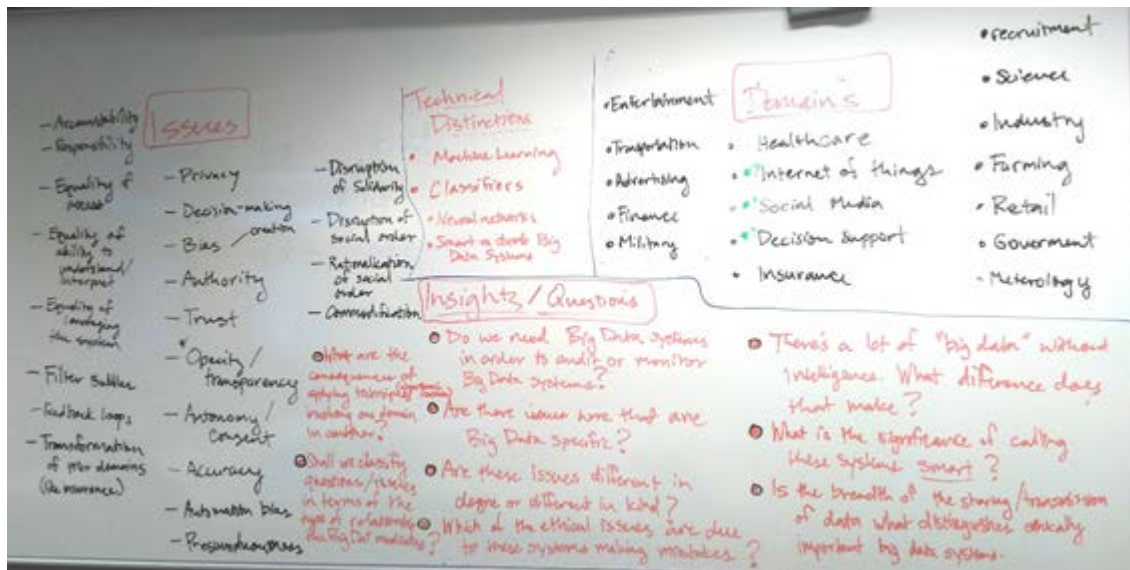 Issues
– Accountability
– Responsibility
– Equality of
access
– Equality of
ability to
understand/
interpret
– Equality of
leveraging
the system
– Filter bubbles
– Feedback loops
– Transformation
of prior domains
(insurance)
– Privacy
– Decision-making
/ creation
– Bias
– Authority
– Trust
– Opacity/
transparency
– Autonomy/
consent
– Accuracy
– Automation bias
– Disruption
of Solidarity
– Disruption of
social order
– Rationalization
of social
order
– Commodification
Technical
Distinctions
• Machine Learning
• Classifiers
• Neural networks
• Smart vs dumb Big
Data Systems
Domains
• Entertainment
• Transportation
• Advertising
• Finance
• Military
• Healthcare
• Internet of things
• Social Media
• Decision Support
• Insurance
• recruitment
• Science
• Industry
• Farming
• Retail
• Goverment
– Meterology
Insights / Questions
What are the
consequences of
applying techniques
making one domain
in another?
Shall we classify
questions/issues
in terms of the
type of relationship
the Big Dat mediates?
Do we need Big Data systems
in order to audit or monitor
Big Data systems?
Are there issues here that are
Big Data specific?
Are these Issues different in
degree or different in kind?
Which of the ethical issues are due
to these systems making mistakes?
There's a lot of "big data" without
intelligence. What difference does
that make?
What is the significance of calling
these systems smart?
Is the breadth of the sharing/transmission
of data what distinguishes ethically
important big data systems.